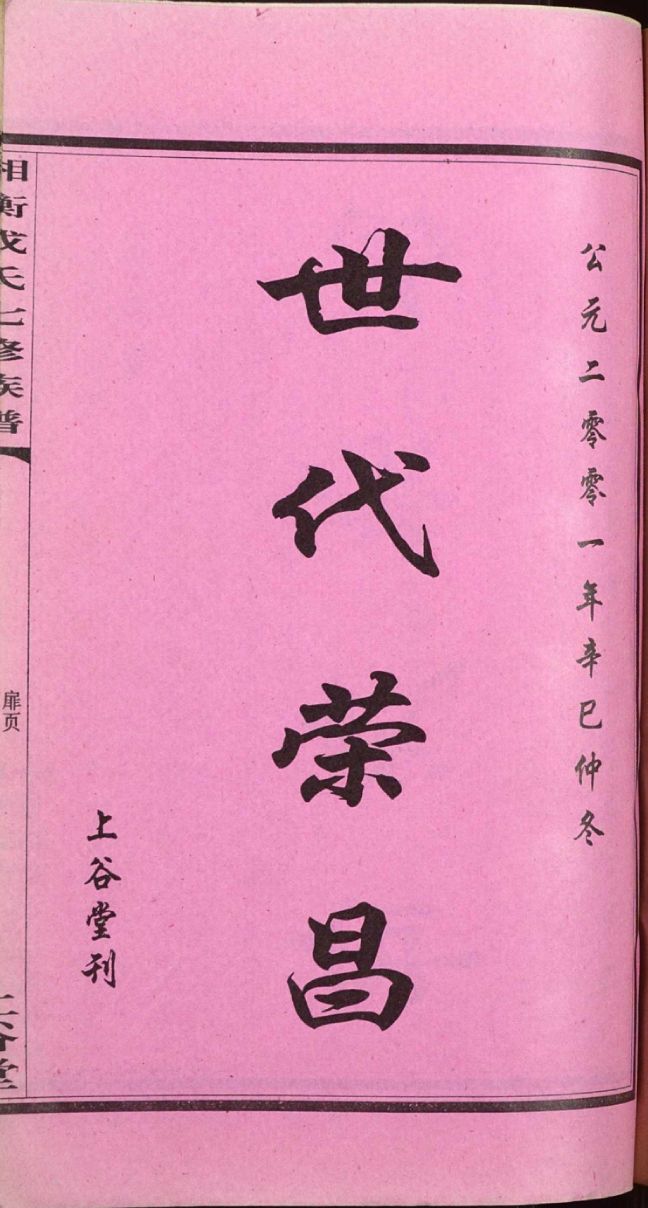 公元二零零一年辛巳仲冬
世代荣昌
上谷堂刊
衡成氏七修族普
扉页
谷堂